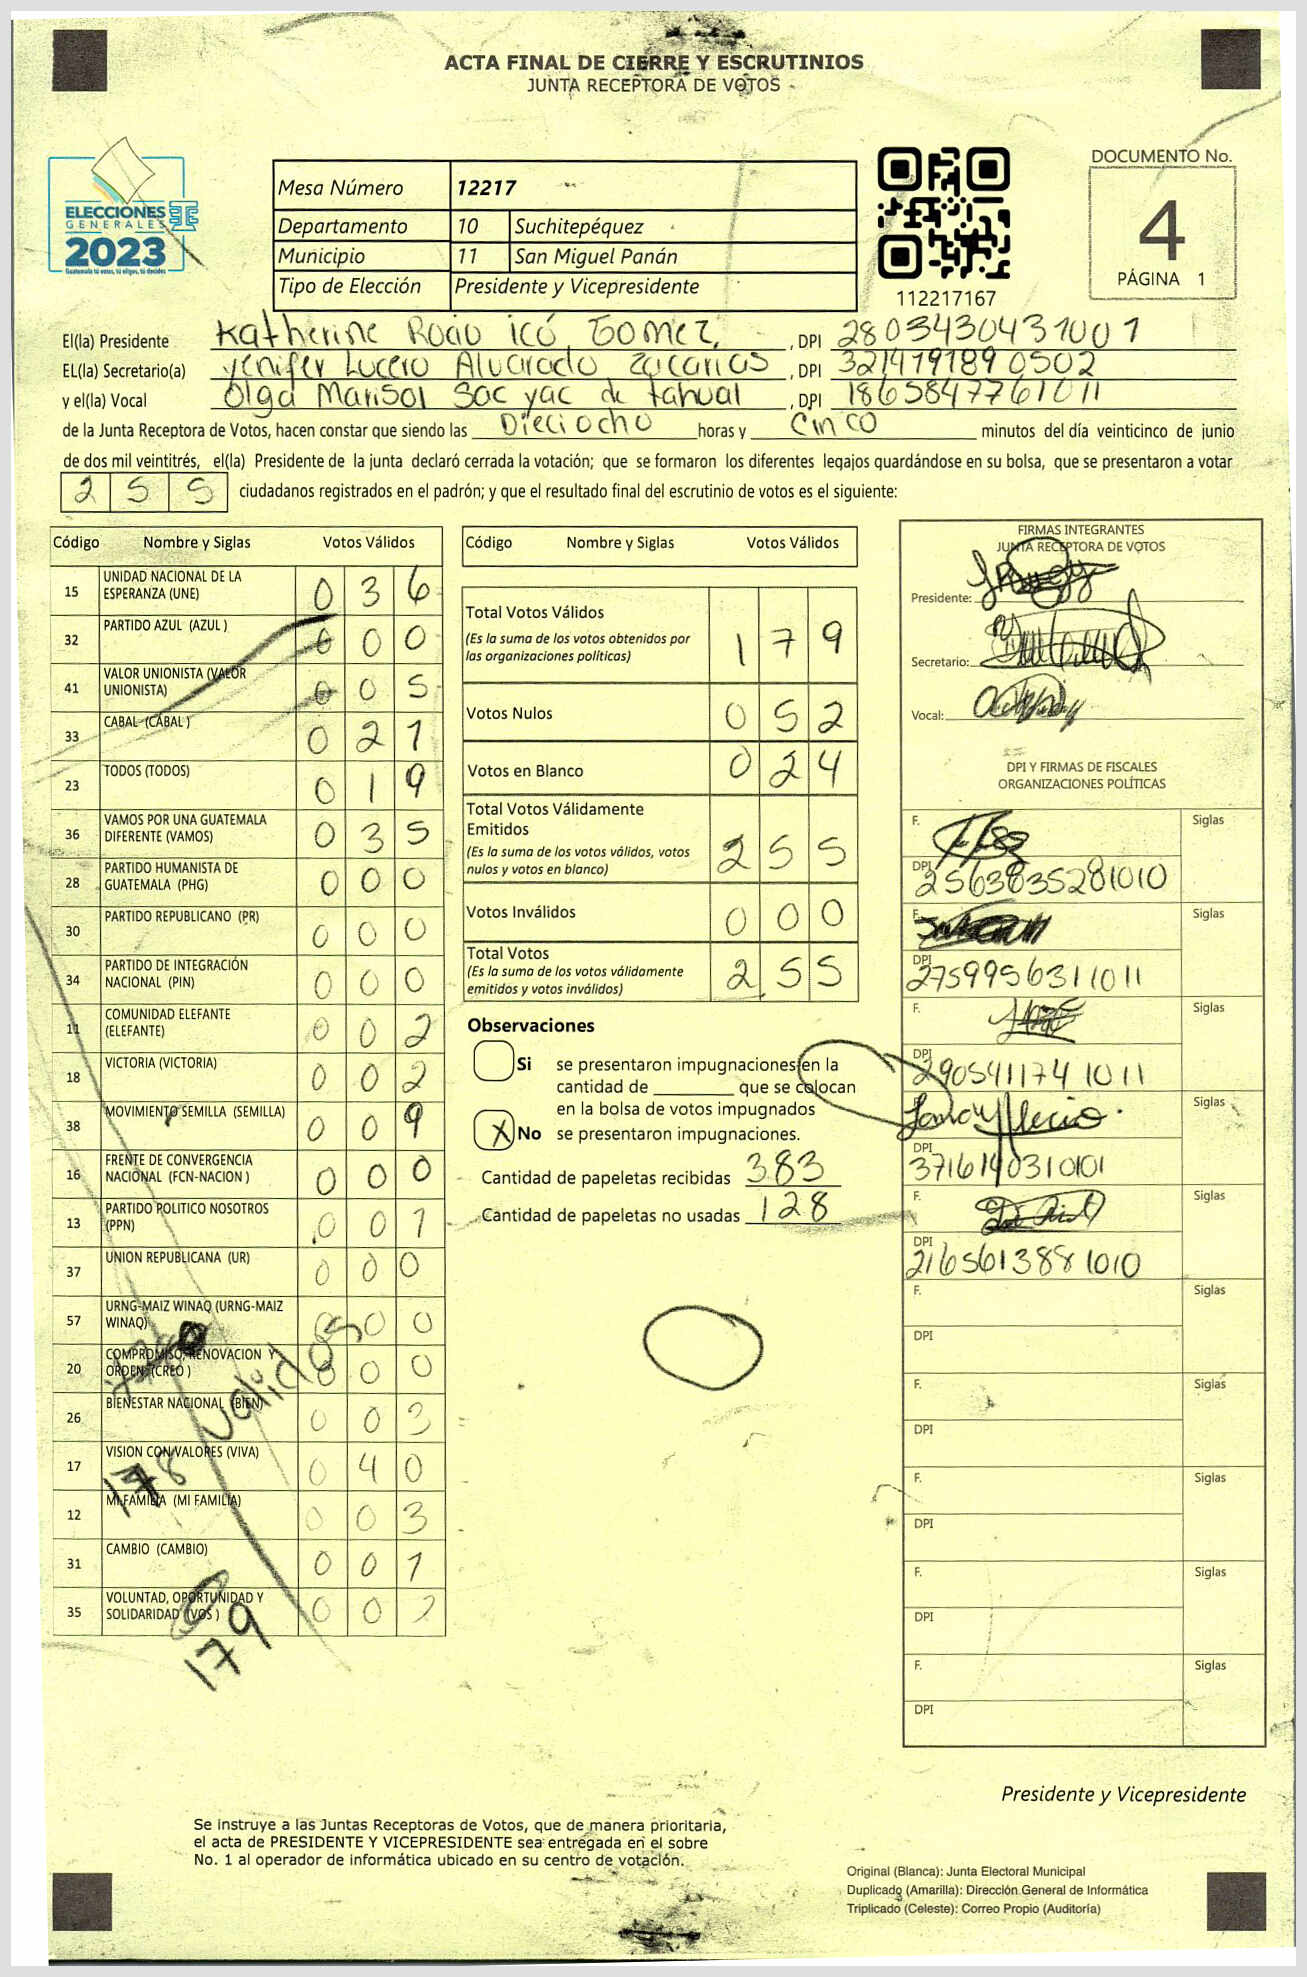 ACTA FINAL DE CIERRE Y ESCRUTINIOS
JUNTA RECEPTORA DE VOTOS
ELECCIONES
GENERALES
2023
Guatemala tú votas, tú eliges, tú decides
Mesa Número 12217
Departamento 10 Suchitepéquez
Municipio 11 San Miguel Panán
Tipo de Elección Presidente y Vicepresidente
112217167
DOCUMENTO No.
4
PÁGINA 1
El(la) Presidente Katherine Rocio Icó Gomez, , DPI 2803430431001
EL(la) Secretario(a) Yenifer Lucero Alvarado Zacarias , DPI 3214791890502
y el(la) Vocal Olga Marisol Sac yac de tahual , DPI 1865847761011
de la Junta Receptora de Votos, hacen constar que siendo las Dieciocho horas y Cinco minutos del día veinticinco de junio
de dos mil veintitrés, el(la) Presidente de la junta declaró cerrada la votación; que se formaron los diferentes legajos guardándose en su bolsa, que se presentaron a votar
2 5 5 ciudadanos registrados en el padrón; y que el resultado final del escrutinio de votos es el siguiente:
Código Nombre y Siglas Votos Válidos
15 UNIDAD NACIONAL DE LA ESPERANZA (UNE) 0 3 6
32 PARTIDO AZUL (AZUL ) 0 0 0
41 VALOR UNIONISTA (VALOR UNIONISTA) 0 0 5
33 CABAL (CABAL ) 0 2 1
23 TODOS (TODOS) 0 1 9
36 VAMOS POR UNA GUATEMALA DIFERENTE (VAMOS) 0 3 5
28 PARTIDO HUMANISTA DE GUATEMALA (PHG) 0 0 0
30 PARTIDO REPUBLICANO (PR) 0 0 0
34 PARTIDO DE INTEGRACIÓN NACIONAL (PIN) 0 0 0
11 COMUNIDAD ELEFANTE (ELEFANTE) 0 0 2
18 VICTORIA (VICTORIA) 0 0 2
38 MOVIMIENTO SEMILLA (SEMILLA) 0 0 9
16 FRENTE DE CONVERGENCIA NACIONAL (FCN-NACION ) 0 0 0
13 PARTIDO POLITICO NOSOTROS (PPN) 0 0 1
37 UNION REPUBLICANA (UR) 0 0 0
57 URNG-MAIZ WINAQ (URNG-MAIZ WINAQ) 0 0 0
20 COMPROMISO, RENOVACION Y ORDEN (CREO ) 0 0 0
26 BIENESTAR NACIONAL (BIEN) 0 0 3
17 VISION CON VALORES (VIVA) 0 4 0
12 MI FAMILIA (MI FAMILIA) 0 0 3
31 CAMBIO (CAMBIO) 0 0 1
35 VOLUNTAD, OPORTUNIDAD Y SOLIDARIDAD (VOS ) 0 0 2
178 validos
179
Código Nombre y Siglas Votos Válidos
Total Votos Válidos
(Es la suma de los votos obtenidos por
las organizaciones políticas) 1 7 9
Votos Nulos 0 5 2
Votos en Blanco 0 2 4
Total Votos Válidamente
Emitidos
(Es la suma de los votos válidos, votos
nulos y votos en blanco) 2 5 5
Votos Inválidos 0 0 0
Total Votos
(Es la suma de los votos válidamente
emitidos y votos inválidos) 2 5 5
Observaciones
Si se presentaron impugnaciones en la
cantidad de ________ que se colocan
en la bolsa de votos impugnados
X No se presentaron impugnaciones.
Cantidad de papeletas recibidas 383
Cantidad de papeletas no usadas 128
FIRMAS INTEGRANTES
JUNTA RECEPTORA DE VOTOS
Presidente:
Secretario:
Vocal:
DPI Y FIRMAS DE FISCALES
ORGANIZACIONES POLÍTICAS
F. Siglas
DPI 2563835281010
F. Siglas
DPI 2759956311011
F. Siglas
DPI 2905411741011
Siglas
DPI 3716140310101
F. Siglas
DPI 2165613881010
F. Siglas
DPI
F. Siglas
DPI
F. Siglas
DPI
F. Siglas
DPI
F. Siglas
DPI
Presidente y Vicepresidente
Se instruye a las Juntas Receptoras de Votos, que de manera prioritaria,
el acta de PRESIDENTE Y VICEPRESIDENTE sea entregada en el sobre
No. 1 al operador de informática ubicado en su centro de votación.
Original (Blanca): Junta Electoral Municipal
Duplicado (Amarilla): Dirección General de Informática
Triplicado (Celeste): Correo Propio (Auditoría)